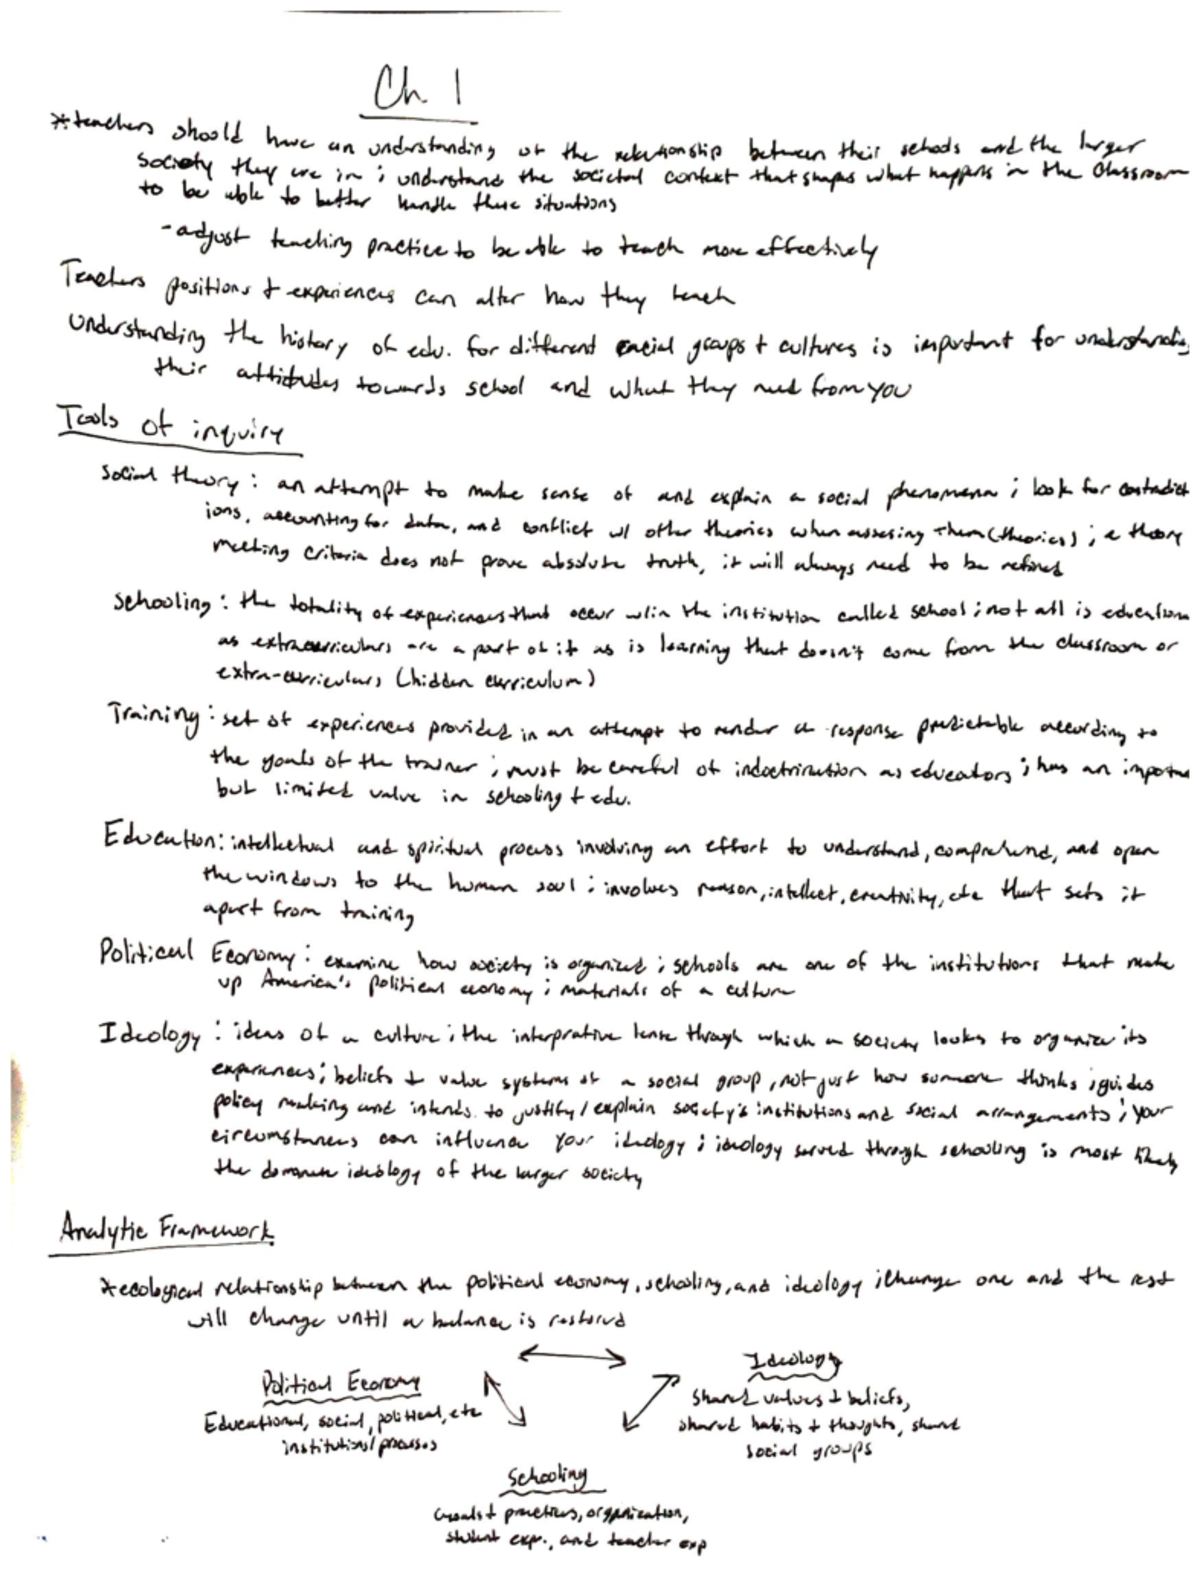 Ch. 1
*teachers should have an understanding of the relationship between their schools and the larger
society they are in ; understand the societal context that shapes what happens in the classroom
to be able to better handle these situations
-adjust teaching practice to be able to teach more effectively
Teachers positions + experiences can alter how they teach
Understanding the history of edu. for different racial groups + cultures is important for understanding
their attitudes towards school and what they need from you
Tools of inquiry
Social theory : an attempt to make sense of and explain a social phenomena ; look for contradict
ions, accounting for data, and conflict w/ other theories when assesing them (theories) ; a theory
meeting criteria does not prove absolute truth, it will always need to be refined
Schooling : the totality of experiences that occur w/in the institution called school ; not all is education
as extracurriculars are a part of it as is learning that doesn't come from the classroom or
extra-curriculars (hidden curriculum)
Training : set of experiences provided in an attempt to render a response predictable according to
the goals of the trainer ; must be careful of indoctrination as educators ; has an importa
but limited value in schooling + edu.
Education: intellectual and spiritual process involving an effort to understand, comprehend, and open
the windows to the human soul ; involves reason, intellect, creativity, etc that sets it
apart from training
Political Economy : examine how society is organized ; schools are one of the institutions that make
up America's political economy ; materials of a culture
Ideology : ideas of a culture ; the interprative lense through which a society looks to organize its
experiences ; beliefs + value systems of a social group, not just how someone thinks ; guides
policy making and intends to justify / explain society's institutions and social arrangements ; your
circumstances can influence your ideology ; ideology served through schooling is most likely
the ideology of the larger society
Analytic Framework
*ecological relationship between the political economy, schooling, and ideology ; change one and the rest
will change until a balance is restored
Political Economy
Educational, social, political, etc
institutions/processes
Ideology
shared values + beliefs,
shared habits + thoughts, shared
social groups
Schooling
Goals + practices, organization,
student exp., and teacher exp